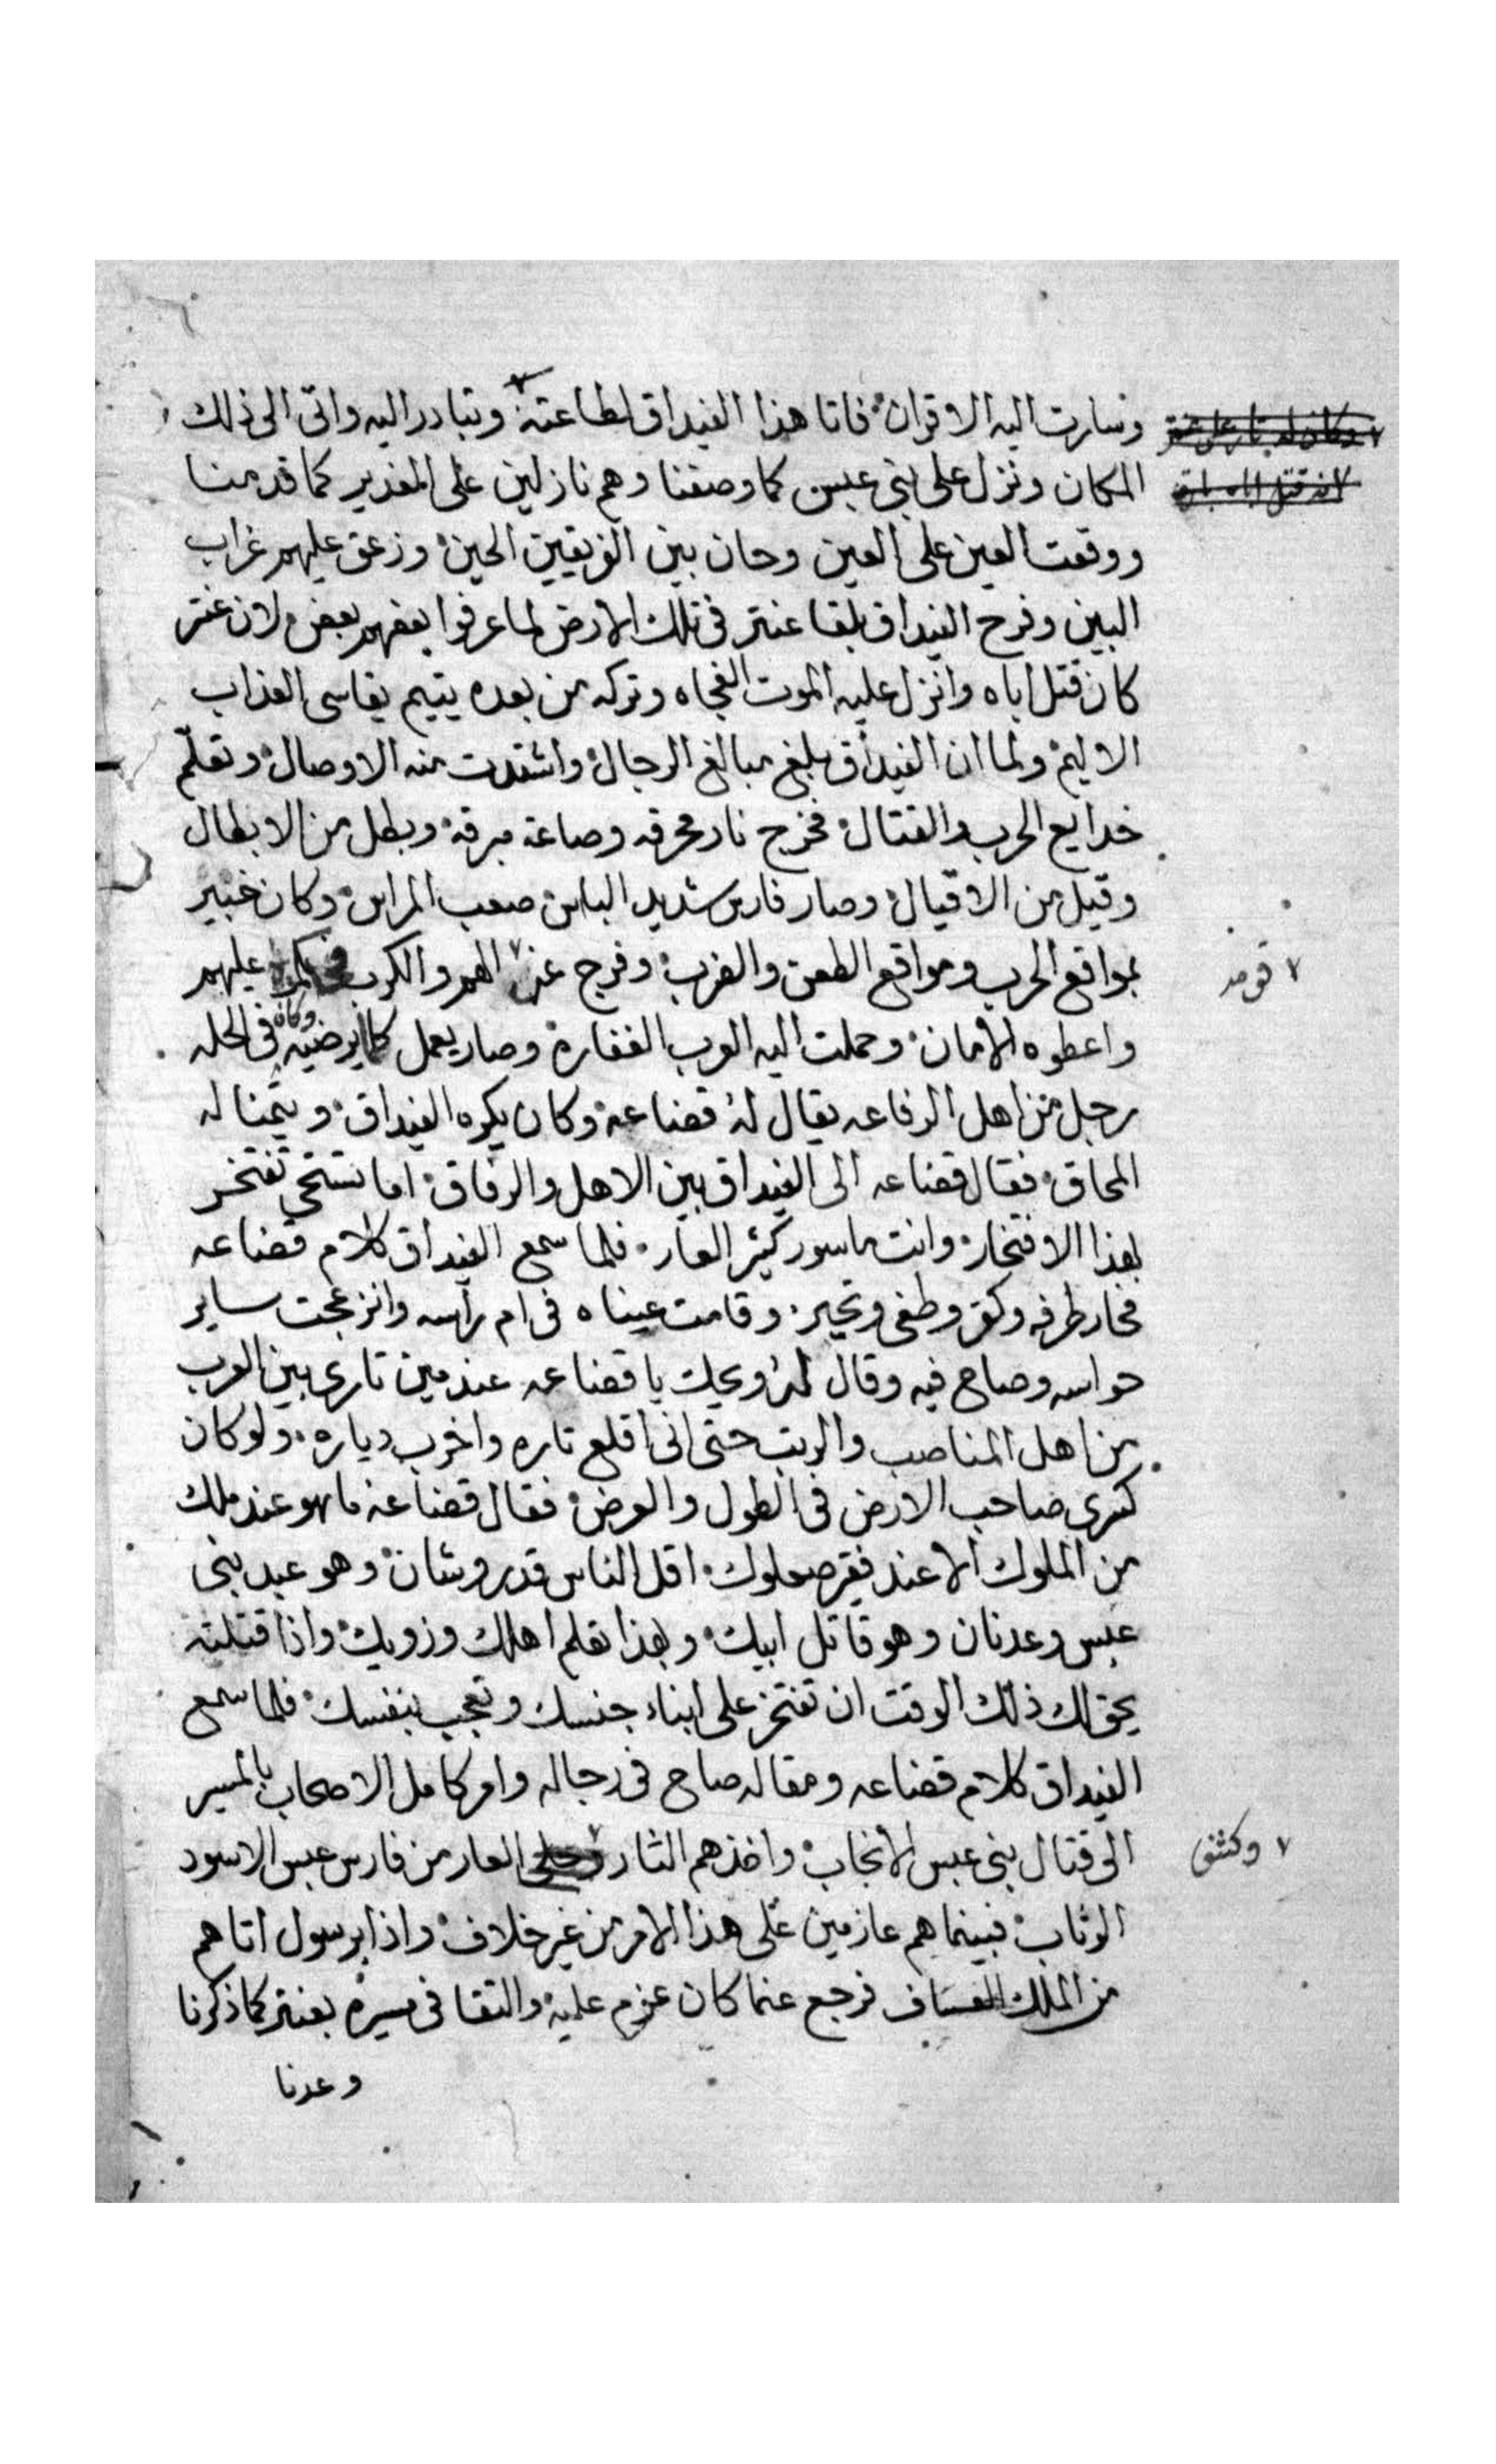 وسارت اليه الاقران فاتا هذا الغيداق لطاعته وتبادر اليه واتى الى ذلك
المكان ونزل على بنى عبس كما وصفنا وهم نازلين على الغدير كما قدمنا
ووقعت العين على العين وحان بين الفريقين الحين وزعق عليهم غراب
البين وفرح الغيداق بلقا عنتر فى تلك الارض لما عرفوا بعضهم بعض لان عنتر
كان قتل اباه وانزل عليه الموت الفجاه وتركه من بعده يتيم يقاسى العذاب
الاليم ولما ان الغيداق بلغ مبالغ الرجال واشتدت منه الاوصال وتعلم
خدايع الحرب والقتال فخرج نار محرقه وصاعقة مبرقة وبطل من الابطال
وقيل من الاقيال وصار فارس شديد الباس صعب المراس وكان خبير
بمواقع الحرب ومواقع الطعن والضرب وفرج عن الهم والكرب عليهم
واعطوه الامان وحملت اليه العرب الغفارة وصار يعمل كما يرضيه وكان فى الحله
رجل من اهل الرفاعه يقال له قضاعة وكان يكره الغيداق ويتمنا له
المحاق فقال قضاعه الى الغيداق بين الاهل والرفاق اما تستحى تفتخر
بهذا الافتخار وانت ماسور كثير العار فلما سمع الغيداق كلام قضاعه
فحار طرفه وكفر وطغى وتجبر وقامت عيناه فى ام رأسه وانزعجت ساير
حواسه وصاح فيه وقال له ويحك يا قضاعه عند مين تارى بين العرب
من اهل المناصب والرتب حتى انى اقلع تاره واخرب دياره ولو كان
كسرى صاحب الارض فى الطول والعرض فقال قضاعة ما هو عند ملك
من الملوك الا عند فقير صعلوك اقل الناس قدر وشان وهو عبد بنى
عبس وعدنان وهو قاتل ابيك وبهذا تعلم اهلك وزويك واذا قتلته
يحق لك ذلك الوقت ان تفتخر على ابناء جنسك وتعجب بنفسك فلما سمع
الغيداق كلام قضاعه ومقاله صاح فى رجاله وامر كامل الاصحاب بالمسير
الى قتال بنى عبس الانجاب واخذهم الثار العار من فارس عبس الاسود
الوثاب فبينما هم عازمين على هذا الامر من غير خلاف واذا برسول اتاهم
من الملك العساف فرجع عنما كان عزم عليه والتقا فى مسيره بعنتر كما ذكرنا
وعدنا
قومه
وكشف